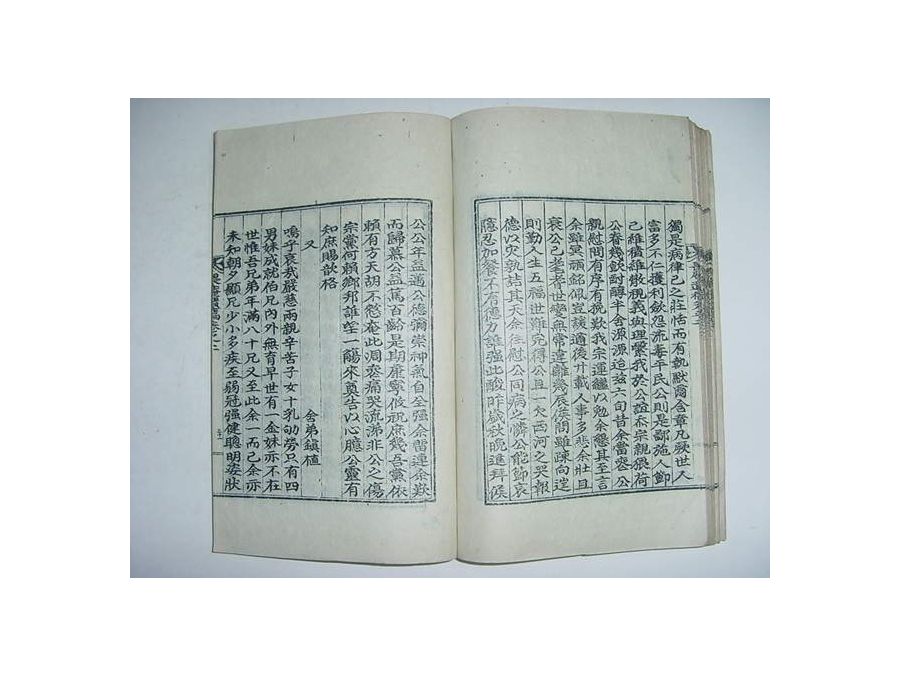 獨是病律己之莊恬而有執默啇含章凡厥世人
富多不仁獲利欲怨流毒平民公則是鄙施人卹
己雖猶雄散視義與理繄我於公誼忝宗親猥荷
公眷幾飲酎醇半舍源源迨玆六旬昔余當窆公
親慰問有序有挽歎我宗運繼以勉余懇其至言
余雖冥頑銘佩豈諼邇後廾載人事多悲余壯且
衰公已耄老昔世變無常違離幾辰侯簡雖疎向逞
則勤人生五福世難完得公且一欠西河之哭報
德以哭孰詰其天余往慰公同病之憐公能節哀
隱忍加餐不有德力誰强此酸昨歲秋晩進拜候
公公年益邁公德彌崇神氣自全强余留連余歎
而歸慕公益萬百齡是期康寧攸祝庶幾吾黨依
賴有方天胡不憖奄此洞瘵痛哭流涕非公之傷
宗黨何賴鄉邦誰望一觴來奠告以心臆公靈有
知庶賜歆格
又
舍弟鎭植
嗚乎哀我嚴慈兩親辛苦子女十乳劬勞只有四
男妹成就伯兄內外無育早世有一金妹亦不在
世惟吾兄弟年滿八十兄又至此余一而已余亦
未知朝夕顧兄少小多疾至弱冠强健聰明姿狀